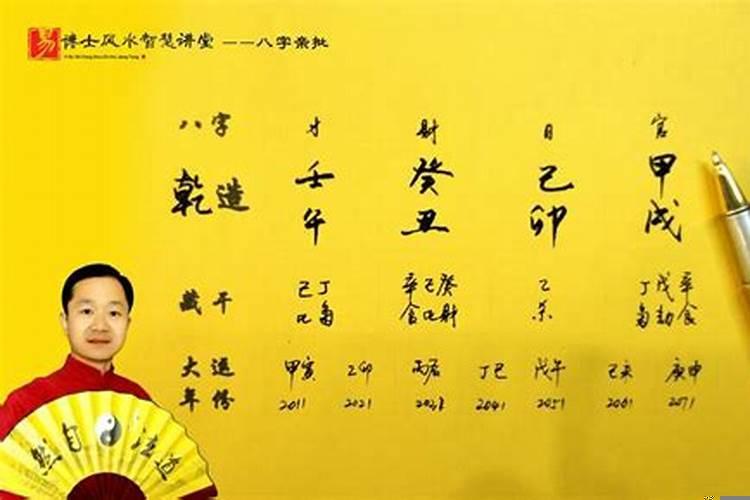 易 博士风水智慧讲堂 ——八字亲批
八字 才 财 日 官
乾造 壬 癸 己 甲
午 丑 卯 戌
藏干 己丁 辛己癸 乙 丁戊辛
比枭 食比财 杀 枭劫食
大运 甲寅 乙卯 丙辰 丁巳 戊午 己未 庚申
年份 2011 2021 2031 2041 2051 2061 2071
然自法道